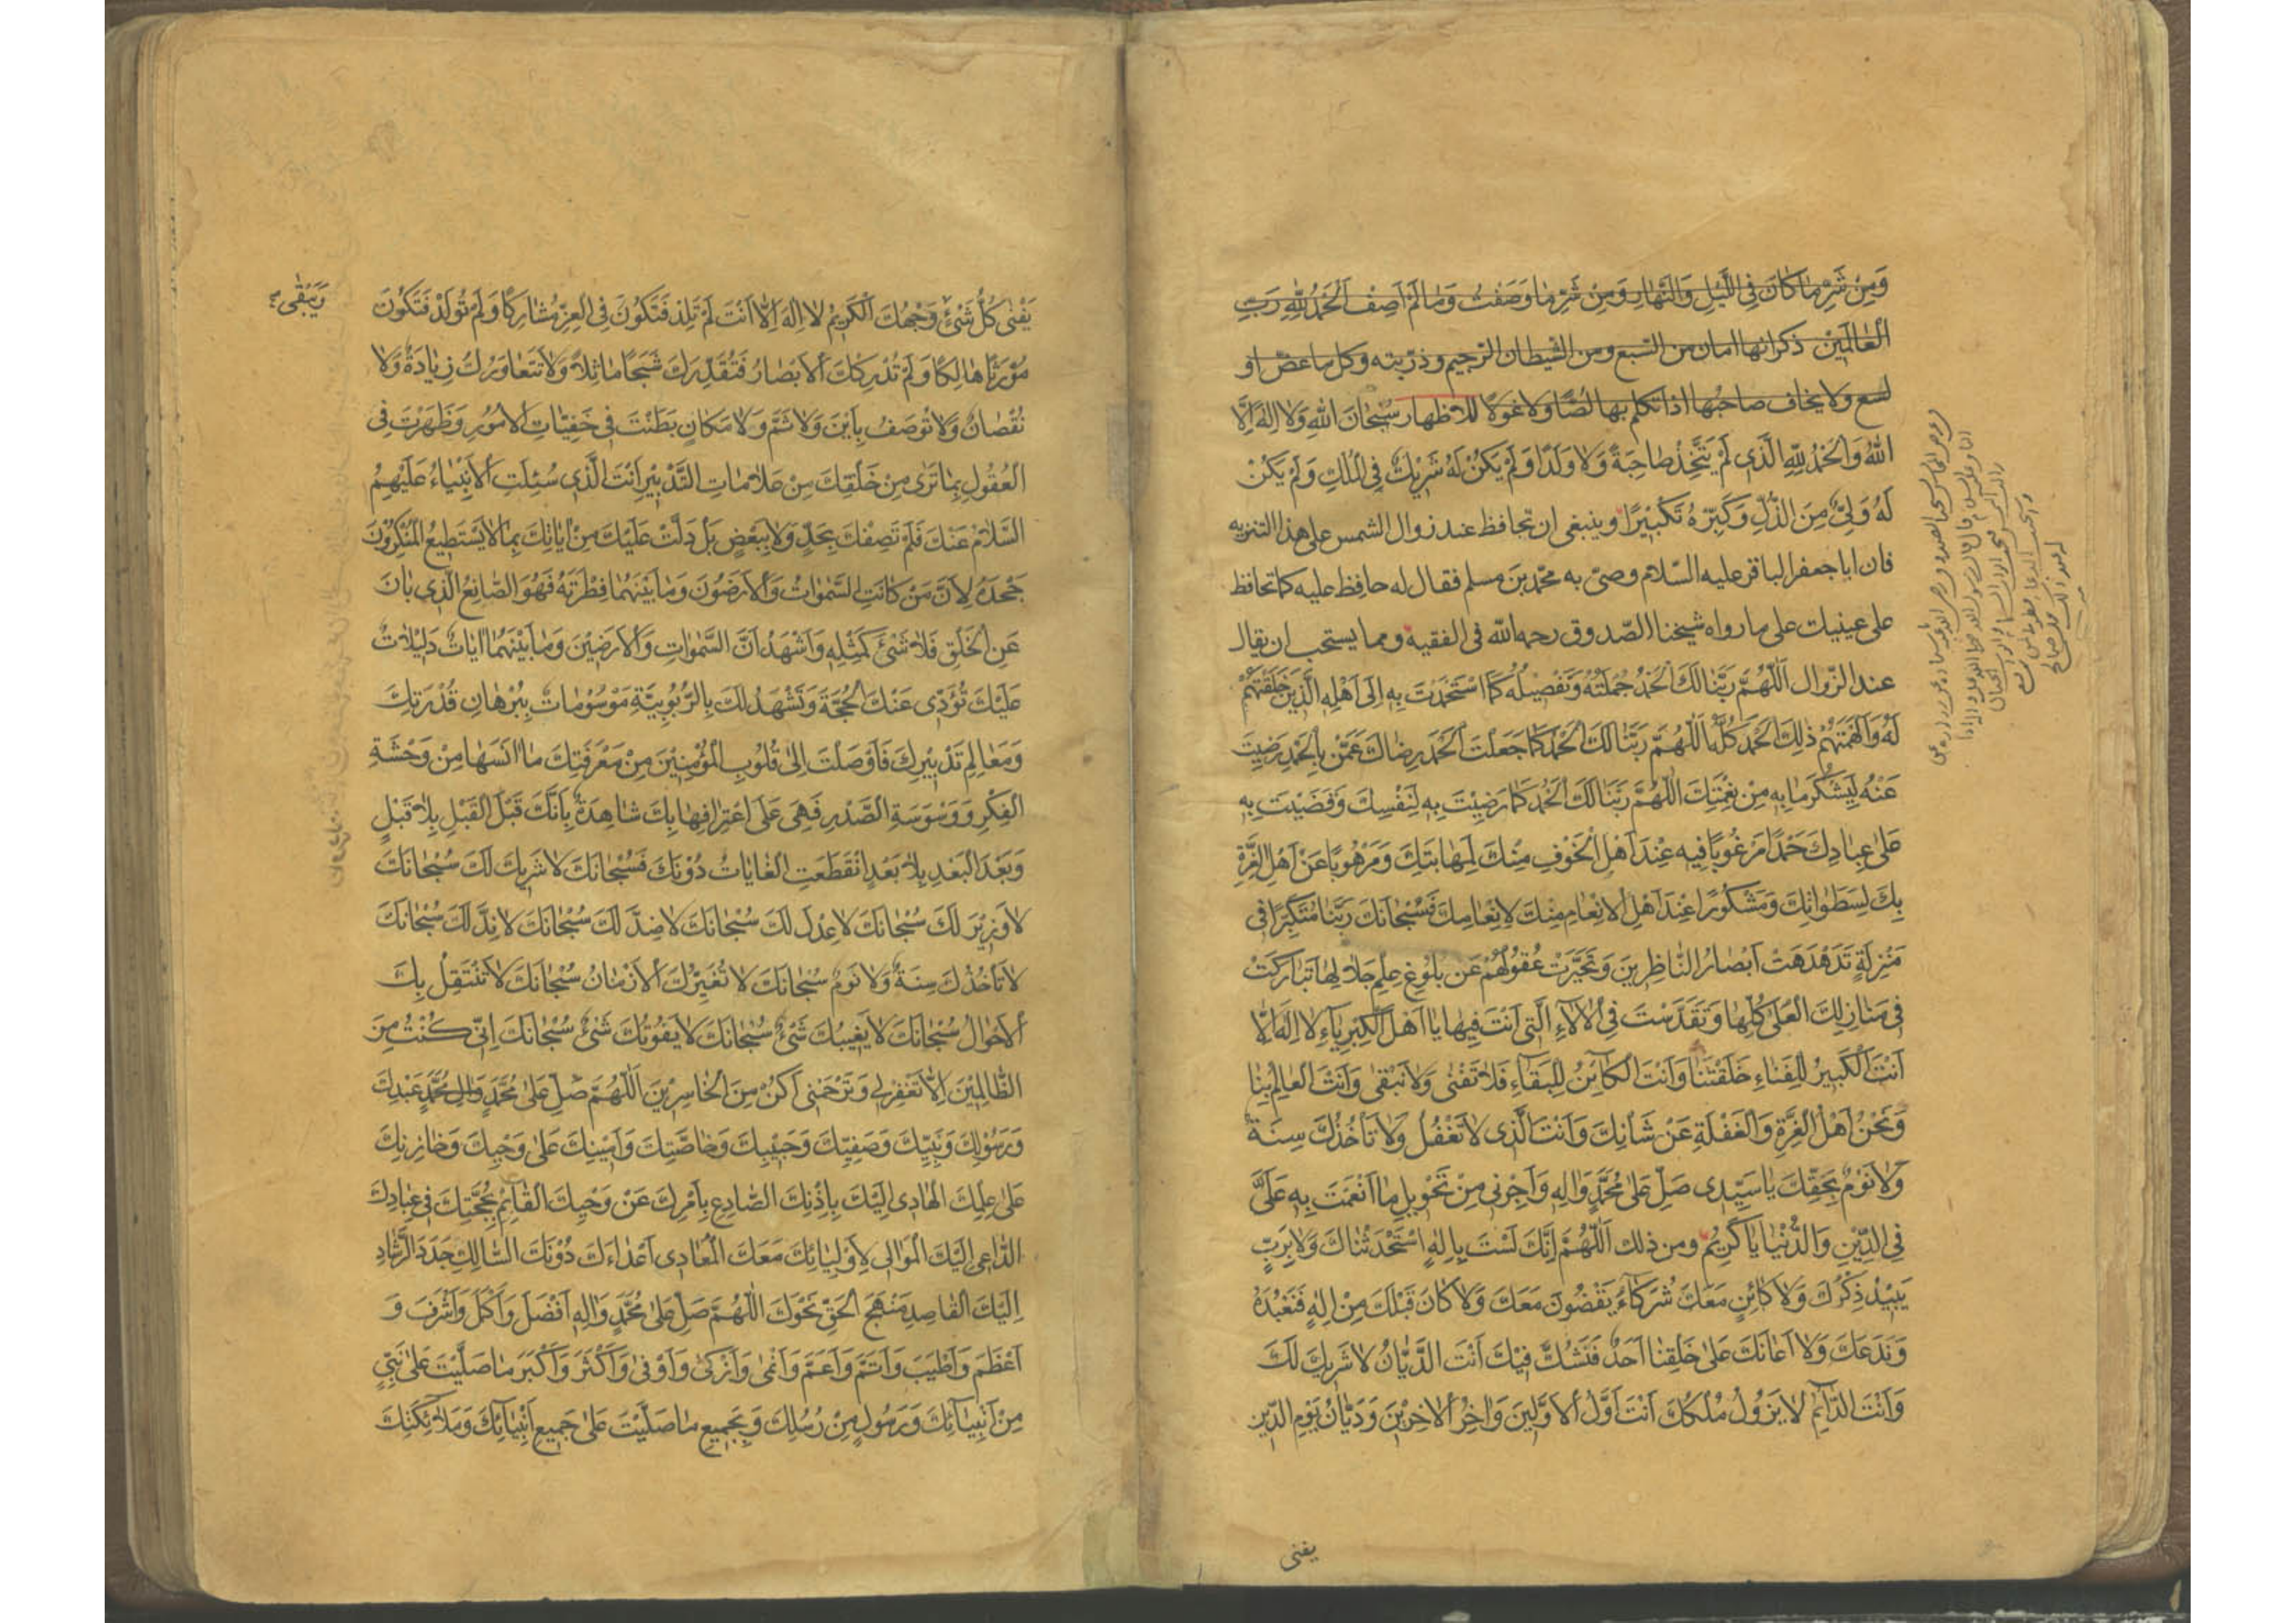 وَمِنْ شَرِّ مَا كَانَ فِي اللَّيْلِ وَالنَّهَارِ وَمِنْ شَرِّ مَا وَصَفْتُ وَمَا لَمْ اَصِفْ اَلْحَمْدُ لِلّٰهِ رَبِّ
الْعَالَمِيْنَ ذكر انها امان من السبع ومن الشيطان الرجيم وذرّيته وكل ما عضّ او
لسع ولا يخاف صاحبها اذا تكلم بها لصًّا ولا غولًا للاظهار سُبْحَانَ اللهِ وَلَا اِلٰهَ اِلَّا
اللهُ وَالْحَمْدُ لِلّٰهِ الَّذِي لَمْ يَتَّخِذْ صَاحِبَةً وَلَا وَلَدًا وَلَمْ يَكُنْ لَهُ شَرِيْكٌ فِي الْمُلْكِ وَلَمْ يَكُنْ
لَهُ وَلِيٌّ مِنَ الذُّلِّ وَكَبِّرْهُ تَكْبِيْرًا وينبغى ان تحافظ عند زوال الشمس على هذا التنزيه
فان ابا جعفر الباقر عليه السّلام وصىّ به محمّد بن مسلم فقال له حافظ عليه كما تحافظ
على عينيك على ما رواه شيخنا الصّدوق رحمه الله فى الفقيه ومما يستحب ان يقال
عند الزّوال اَللّٰهُمَّ رَبَّنَا لَكَ الْحَمْدُ جُمْلَتُهُ وَتَفْصِيلُهُ كَمَا اسْتَحْمَدْتَ بِهِ اِلٰى اَهْلِهِ الَّذِيْنَ خَلَقْتَهُمْ
لَهُ وَاَلْهَمْتَهُمْ ذٰلِكَ الْحَمْدَ كُلَّهُ اَللّٰهُمَّ رَبَّنَا لَكَ الْحَمْدُ كَمَا جَعَلْتَ الْحَمْدَ رِضَاكَ عَمَّنْ بِالْحَمْدِ رَضِيْتَ
عَنْهُ لِيَشْكُرَ مَا بِهِ مِنْ نِعْمَتِكَ اَللّٰهُمَّ رَبَّنَا لَكَ الْحَمْدُ كَمَا رَضِيْتَ بِهِ لِنَفْسِكَ وَقَضَيْتَ بِهِ
عَلٰى عِبَادِكَ حَمْدًا مَرْغُوبًا فِيهِ عِنْدَ اَهْلِ الْخَوْفِ مِنْكَ لِمَهَابَتِكَ وَمَرْهُوبًا عَنْ اَهْلِ الْغِرَّةِ
بِكَ لِسَطَوَاتِكَ وَمَشْكُورًا عِنْدَ اَهْلِ الْاِنْعَامِ مِنْكَ لِاِنْعَامِكَ فَسُبْحَانَكَ رَبَّنَا مُتَكَبِّرًا فِى
مَنْزِلَةٍ تَدَهْدَهَتْ اَبْصَارُ النَّاظِرِينَ وَتَحَيَّرَتْ عُقُولُهُمْ عَنْ بُلُوغِ عِلْمِ جَلَالِهَا تَبَارَكْتَ
فِى مَنَازِلِكَ الْعُلٰى كُلِّهَا وَتَقَدَّسْتَ فِى الْاٰلَاءِ الَّتِى اَنْتَ فِيهَا يَا اَهْلَ الْكِبْرِيَاءِ لَا اِلٰهَ اِلَّا
اَنْتَ الْكَبِيْرُ لِلْفَنَاءِ خَلَقْتَنَا وَاَنْتَ الْكَائِنُ لِلْبَقَاءِ فَلَا تَفْنٰى وَلَا نَبْقٰى وَاَنْتَ الْعَالِمُ بِنَا
وَنَحْنُ اَهْلُ الْغِرَّةِ وَالْغَفْلَةِ عَنْ شَاْنِكَ وَاَنْتَ الَّذِى لَا تَغْفُلُ وَلَا تَأْخُذُكَ سِنَةٌ
وَلَا نَوْمٌ بِحَقِّكَ يَا سَيِّدِى صَلِّ عَلٰى مُحَمَّدٍ وَاٰلِهِ وَاَجِرْنِى مِنْ تَحْوِيلِ مَا اَنْعَمْتَ بِهِ عَلَيَّ
فِى الدِّيْنِ وَالدُّنْيَا يَا كَرِيْمُ ومن ذلك اَللّٰهُمَّ اِنَّكَ لَسْتَ بِاِلٰهٍ اسْتَحْدَثْنَاكَ وَلَا بِرَبٍّ
يَبِيْدُ ذِكْرُكَ وَلَا كَائِنٍ مَعَكَ شُرَكَاءُ يَقْضُونَ مَعَكَ وَلَا كَانَ قَبْلَكَ مِنْ اِلٰهٍ فَنَعْبُدَهُ
وَنَدَعَكَ وَلَا اَعَانَكَ عَلٰى خَلْقِنَا اَحَدٌ فَنَشُكَّ فِيْكَ اَنْتَ الدَّيَّانُ لَا شَرِيكَ لَكَ
وَاَنْتَ الدَّائِمُ لَا يَزُولُ مُلْكُكَ اَنْتَ اَوَّلُ الْاَوَّلِيْنَ وَاٰخِرُ الْاٰخِرِيْنَ وَدَيَّانُ يَوْمِ الدِّيْنِ
يفنى
يَفْنٰى كُلُّ شَىْءٍ وَجْهُكَ الْكَرِيْمُ لَا اِلٰهَ اِلَّا اَنْتَ لَمْ تَلِدْ فَتَكُونَ فِى الْعِزِّ مُشَارَكًا وَلَمْ تُولَدْ فَتَكُونَ
وَيَبْقٰى
مَوْرُثًا هَالِكًا وَلَمْ تُدْرِكْكَ الْاَبْصَارُ فَتُقَدِّرَكَ شَبَحًا مَاثِلًا وَلَا تَتَعَاوَرُكَ زِيَادَةٌ وَلَا
نُقْصَانٌ وَلَا تُوصَفُ بِاَيْنَ وَلَا ثَمَّ وَلَا مَكَانٍ بَطَنْتَ فِى خَفِيَّاتِ الْاُمُوْرِ وَظَهَرْتَ فِى
الْعُقُولِ بِمَا تَرٰى مِنْ خَلْقِكَ مِنْ عَلَامَاتِ التَّدْبِيْرِ اَنْتَ الَّذِى سُئِلَتِ الْاَنْبِيَاءُ عَلَيْهِمُ
السَّلَامُ عَنْكَ فَلَمْ تَصِفْكَ بِحَدٍّ وَلَا بِبَعْضٍ بَلْ دَلَّتْ عَلَيْكَ مِنْ اٰيَاتِكَ بِمَا لَا يَسْتَطِيعُ الْمُنْكِرُوْنَ
جَحْدَهُ لِاَنَّ مَنْ كَانَتِ السَّمٰوَاتُ وَالْاَرَضُونَ وَمَا بَيْنَهُمَا فِطْرَتَهُ فَهُوَ الصَّانِعُ الَّذِى بَانَ
عَنِ الْخَلْقِ فَلَا شَىْءَ كَمِثْلِهِ وَاَشْهَدُ اَنَّ السَّمٰوَاتِ وَالْاَرَضِيْنَ وَمَا بَيْنَهُمَا اٰيَاتٌ دَلِيْلَاتٌ
عَلَيْكَ تُؤَدِّى عَنْكَ الْحُجَّةَ وَتَشْهَدُ لَكَ بِالرُّبُوبِيَّةِ مَوْسُومَاتٌ بِبُرْهَانِ قُدْرَتِكَ
وَمَعَالِمِ تَدْبِيْرِكَ فَاَوْصَلْتَ اِلٰى قُلُوبِ الْمُؤْمِنِيْنَ مِنْ مَعْرِفَتِكَ مَا اٰنَسَهَا مِنْ وَحْشَةِ
الْفِكْرِ وَوَسْوَسَةِ الصَّدْرِ فَهِىَ عَلَى اعْتِرَافِهَا بِكَ شَاهِدَةٌ بِاَنَّكَ قَبْلَ الْقَبْلِ بِلَا قَبْلٍ
وَبَعْدَ الْبَعْدِ بِلَا بَعْدٍ انْقَطَعَتِ الْغَايَاتُ دُوْنَكَ فَسُبْحَانَكَ لَا شَرِيكَ لَكَ سُبْحَانَكَ
لَا وَزِيْرَ لَكَ سُبْحَانَكَ لَا عِدْلَ لَكَ سُبْحَانَكَ لَا ضِدَّ لَكَ سُبْحَانَكَ لَا نِدَّ لَكَ سُبْحَانَكَ
لَا تَأْخُذُكَ سِنَةٌ وَلَا نَوْمٌ سُبْحَانَكَ لَا تُغَيِّرُكَ الْاَزْمَانُ سُبْحَانَكَ لَا تَنْتَقِلُ بِكَ
الْاَحْوَالُ سُبْحَانَكَ لَا يَغِيبُكَ شَىْءٌ سُبْحَانَكَ لَا يَفُوْتُكَ شَىْءٌ سُبْحَانَكَ اِنِّى كُنْتُ مِنَ
الظَّالِمِيْنَ اِلَّا تَغْفِرْ لِى وَتَرْحَمْنِى اَكُنْ مِنَ الْخَاسِرِيْنَ اَللّٰهُمَّ صَلِّ عَلٰى مُحَمَّدٍ وَاٰلِ مُحَمَّدٍ عَبْدِكَ
وَرَسُوْلِكَ وَنَبِيِّكَ وَصَفِيِّكَ وَحَبِيْبِكَ وَخَاصَّتِكَ وَاَمِيْنِكَ عَلٰى وَحْيِكَ وَخَازِنِكَ
عَلٰى عِلْمِكَ الْهَادِى اِلَيْكَ بِاِذْنِكَ الصَّادِعِ بِاَمْرِكَ عَنْ وَحْيِكَ الْقَائِمِ بِحُجَّتِكَ فِى عِبَادِكَ
الدَّاعِى اِلَيْكَ الْمُوَالِى لِاَوْلِيَائِكَ مَعَكَ الْمُعَادِى اَعْدَاءَكَ دُوْنَكَ السَّالِكِ جَدَدَ الرَّشَادِ
اِلَيْكَ الْقَاصِدِ مَنْهَجَ الْحَقِّ نَحْوَكَ اَللّٰهُمَّ صَلِّ عَلٰى مُحَمَّدٍ وَاٰلِهِ اَفْضَلَ وَاَكْمَلَ وَاَشْرَفَ وَ
اَعْظَمَ وَاَطْيَبَ وَاَتَمَّ وَاَعَمَّ وَاَنْمٰى وَاَزْكٰى وَاَوْفٰى وَاَكْثَرَ وَاَكْبَرَ مَا صَلَّيْتَ عَلٰى نَبِىٍّ
مِنْ اَنْبِيَائِكَ وَرَسُولٍ مِنْ رُسُلِكَ وَبِجَمِيعِ مَا صَلَّيْتَ عَلٰى جَمِيعِ اَنْبِيَائِكَ وَمَلَائِكَتِكَ